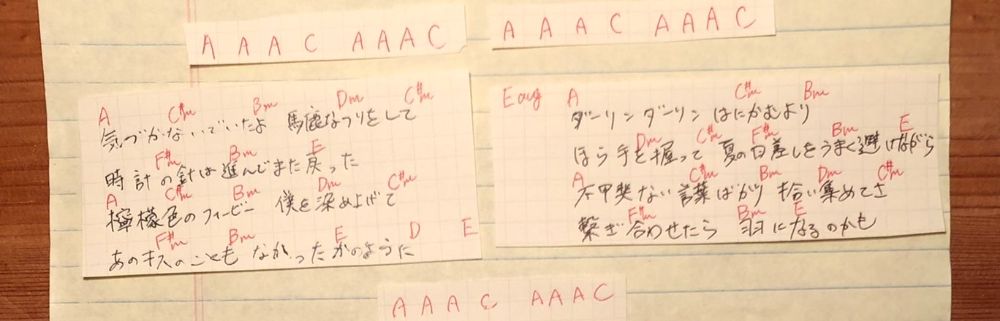 A A A C A A A C
A A A C A A A C
A C#m Bm Dm C#m
気づかないでいたよ 馬鹿なフリをして
F#m Bm E
時計の針は進んでまた戻った
A C#m Bm Dm C#m
檸檬色のフィービー 僕を染め上げて
F#m Bm E D E
あのキスのことも なかったかのように
Eaug A C#m Bm
ダーリン ダーリン はにかむより
Dm C#m F#m Bm E
ほら手を握って 夏の日差しをうまく避けながら
A C#m Bm Dm C#m
不甲斐ない言葉ばかり 拾い集めてさ
F#m Bm E
繋ぎ合わせたら 羽になるのかも
A A A C A A A C